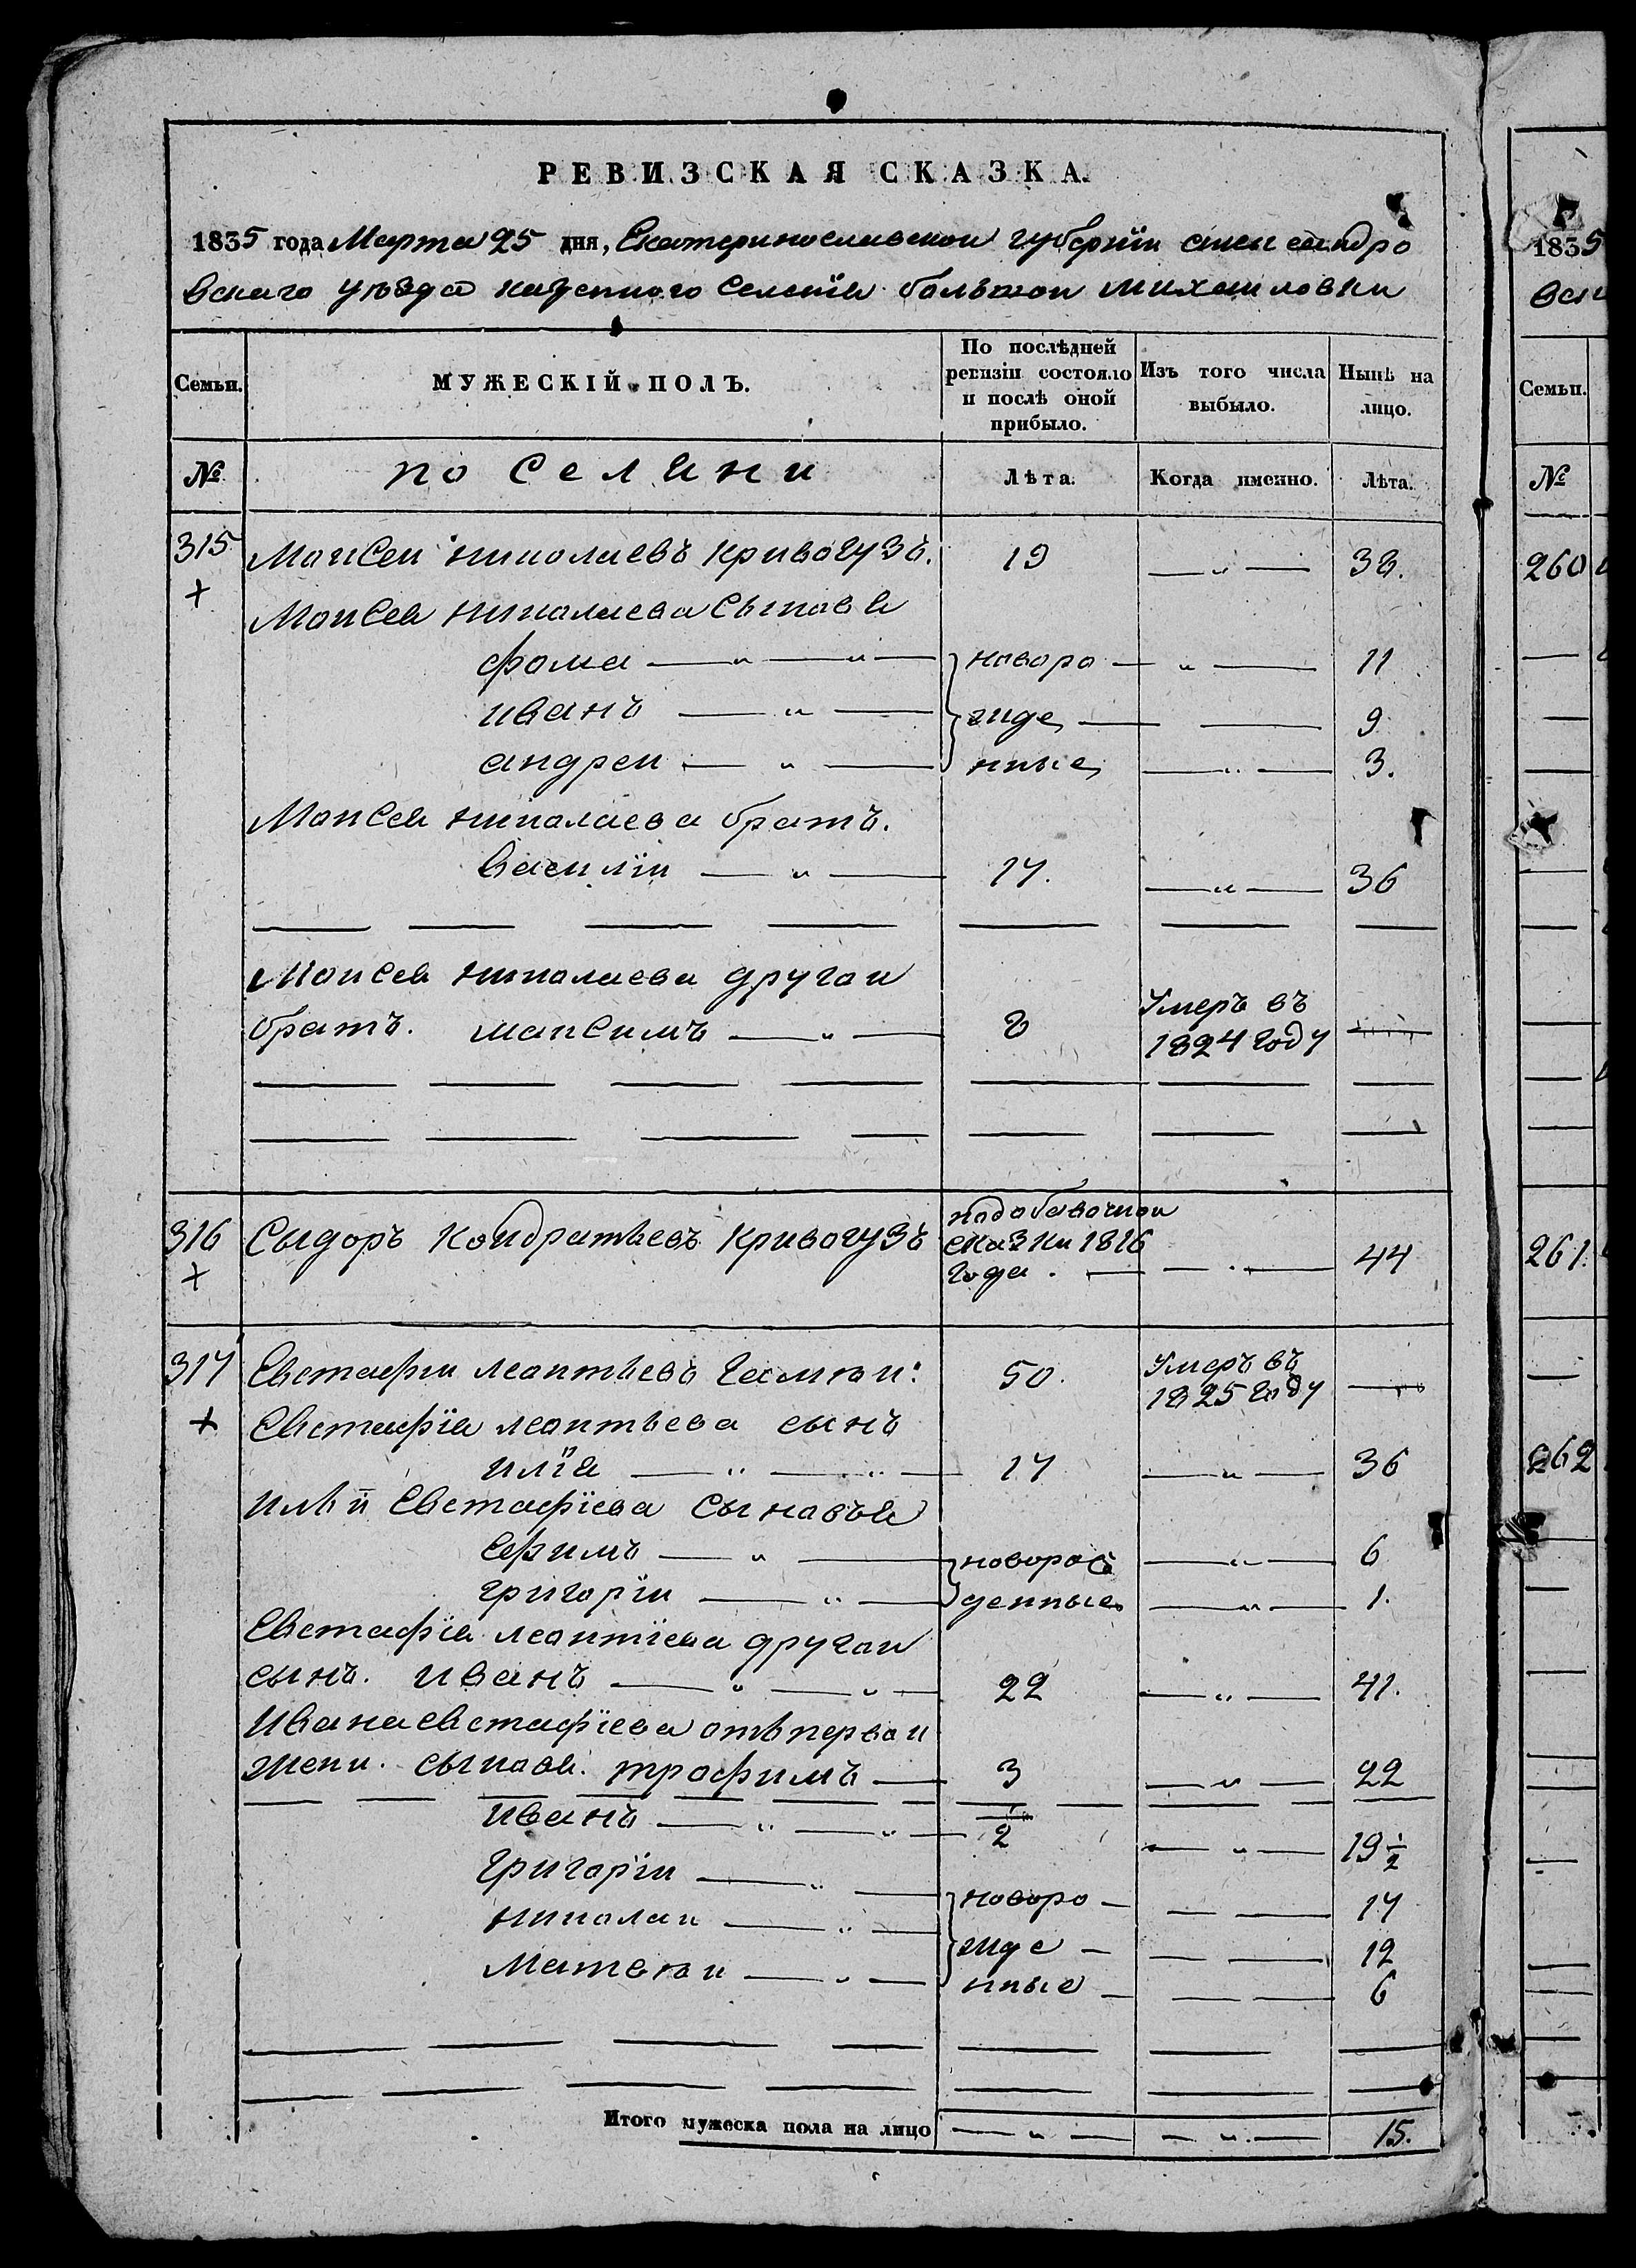 РЕВИЗСКАЯ СКАЗКА.
1835 года Марта 25 дня, Екатеринославской губернїи алек сандро
вскаго уѣзда казенного селенїя большои михаиловки
Семьи. МУЖЕСКІЙ ПОЛЪ. По послѣдней ревизіи состояло и послѣ оной прибыло. Изъ того числа выбыло. Нынѣ на лицо.
№ поселяни Лѣта. Когда именно. Лѣта.
315 Моисеи николаевъ кривогузъ. 19 — „ — 38.
Моисея николаева сыновя
фома — „ — „ — новоро — „ — 11
иванъ — „ — жде — — 9
андреи — „ — нные — „ — 3.
Моисея николаева братъ.
василїи — „ — 17. — „ — 36
Моисея николаева другаи Умеръ въ
братъ. максимъ — „ — 8 1824 году —
316 Сыдоръ кондратьевъ кривогузъ подобавочнои
сказки 1816
года. — — . — 44
317 Евстафи леонтьевъ 50. Умеръ въ
1825 году —
Евстафїя леонтьева сынъ
илїя — „ — „ — 17 — „ — 36
Ильи Евстафїева сыновъя
ефимъ — „ — новорож — „ — 6
григорїи — „ — денные — „ — 1.
Евстафїя леонтїева другаи
сынъ. иванъ — „ — „ — 22 — „ — 41.
Ивана евстафїева отъ первои
жени. сыновя. трофимъ — 3 — „ — 22
иванъ — „ — „ — 1/2 — „ — 19 1/2
григорїи — „ — новоро — — — 17
николаи — „ — жде — — — 12
Матвѣи — „ — нные — — — 6
Итого мужеска пола на лицо — „ — — „ — 15.
1835
вск
Семьи.
№
260
261.
262